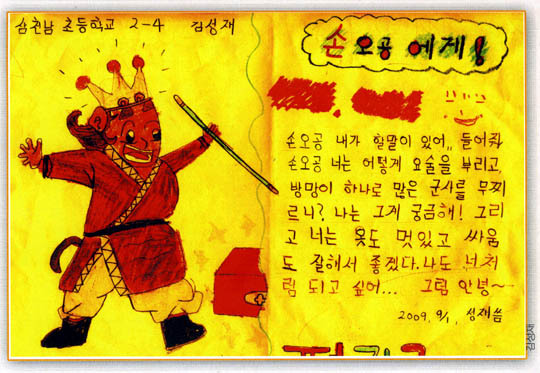 삼천남 초등학교 2-4 김성재
손오공 에게!
손오공 내가 할말이 있어,, 들어줘
손오공 너는 어떻게 요술을 부리고,
방망이 하나로 많은 군사를 무찌
르니? 나는 그게 궁금해! 그리
고 너는 옷도 멋있고 싸움
도 잘해서 좋겠다. 나도 너처
럼 되고 싶어... 그럼 안녕~
2009. 9/1, 성재씀
김성재